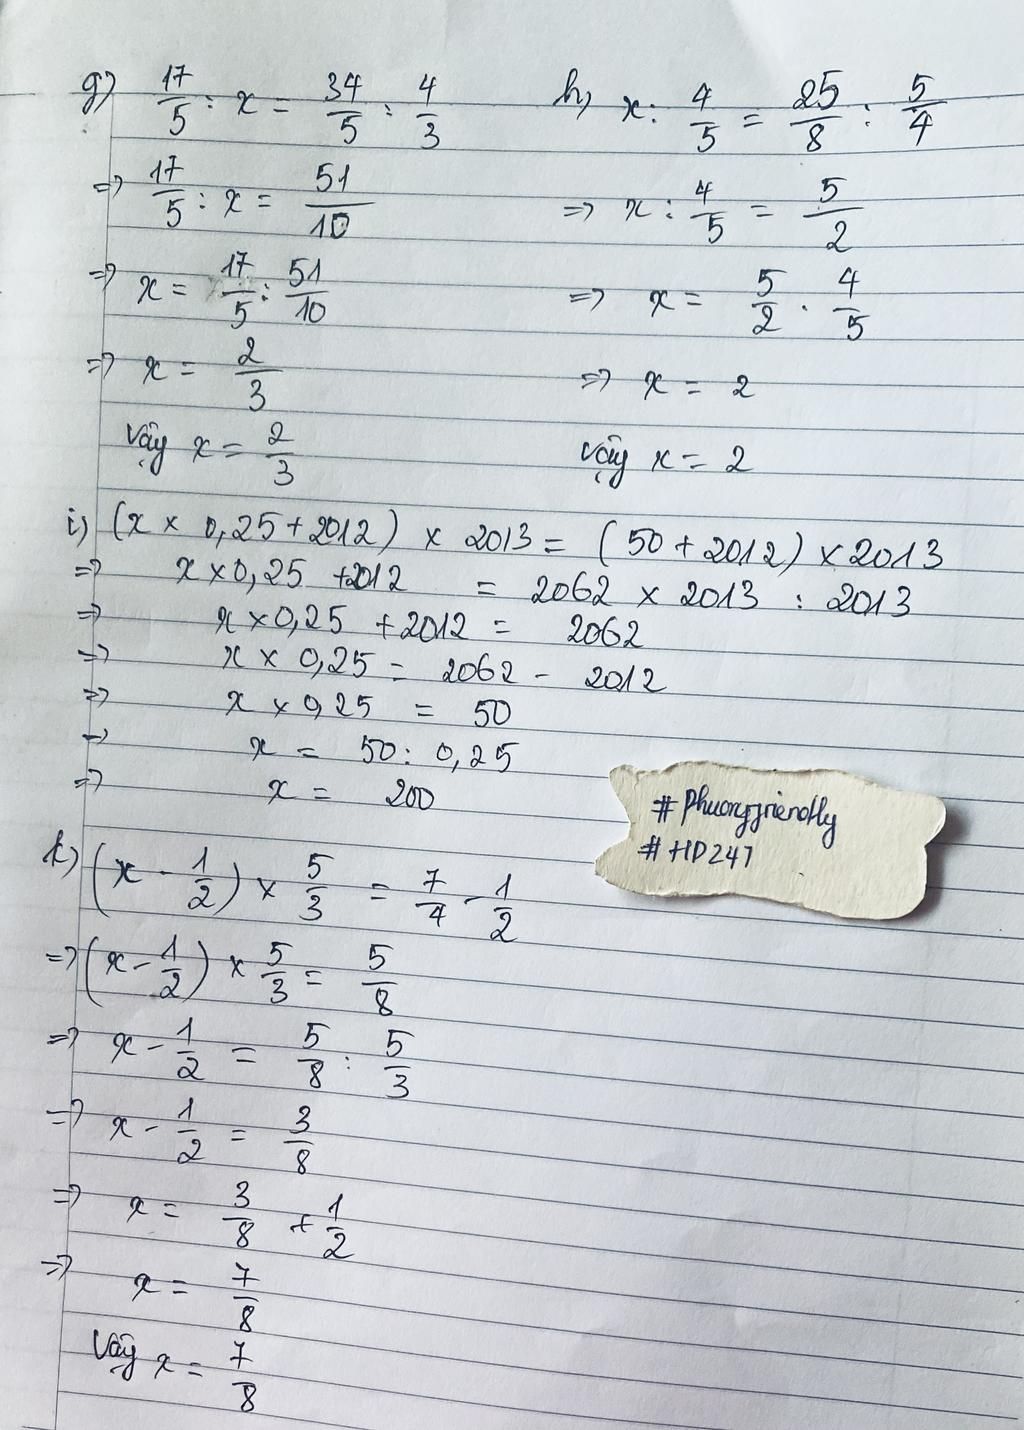 g) 17/5 : x = 34/5 : 4/3
=> 17/5 : x = 51/10
=> x = 17/5 : 51/10
=> x = 2/3
Vậy x = 2/3
h) x : 4/5 = 25/8 : 5/4
=> x : 4/5 = 5/2
=> x = 5/2 . 4/5
=> x = 2
Vậy x = 2
i) (x × 0,25 + 2012) × 2013 = (50 + 2012) × 2013
=> x × 0,25 + 2012 = 2062 × 2013 : 2013
=> x × 0,25 + 2012 = 2062
=> x × 0,25 = 2062 - 2012
=> x × 0,25 = 50
=> x = 50 : 0,25
=> x = 200
# Phuongfriendly
# HD247
k) (x - 1/2) × 5/3 = 7/4 - 1/2
=> (x - 1/2) × 5/3 = 5/8
=> x - 1/2 = 5/8 : 5/3
=> x - 1/2 = 3/8
=> x = 3/8 + 1/2
=> x = 7/8
Vậy x = 7/8